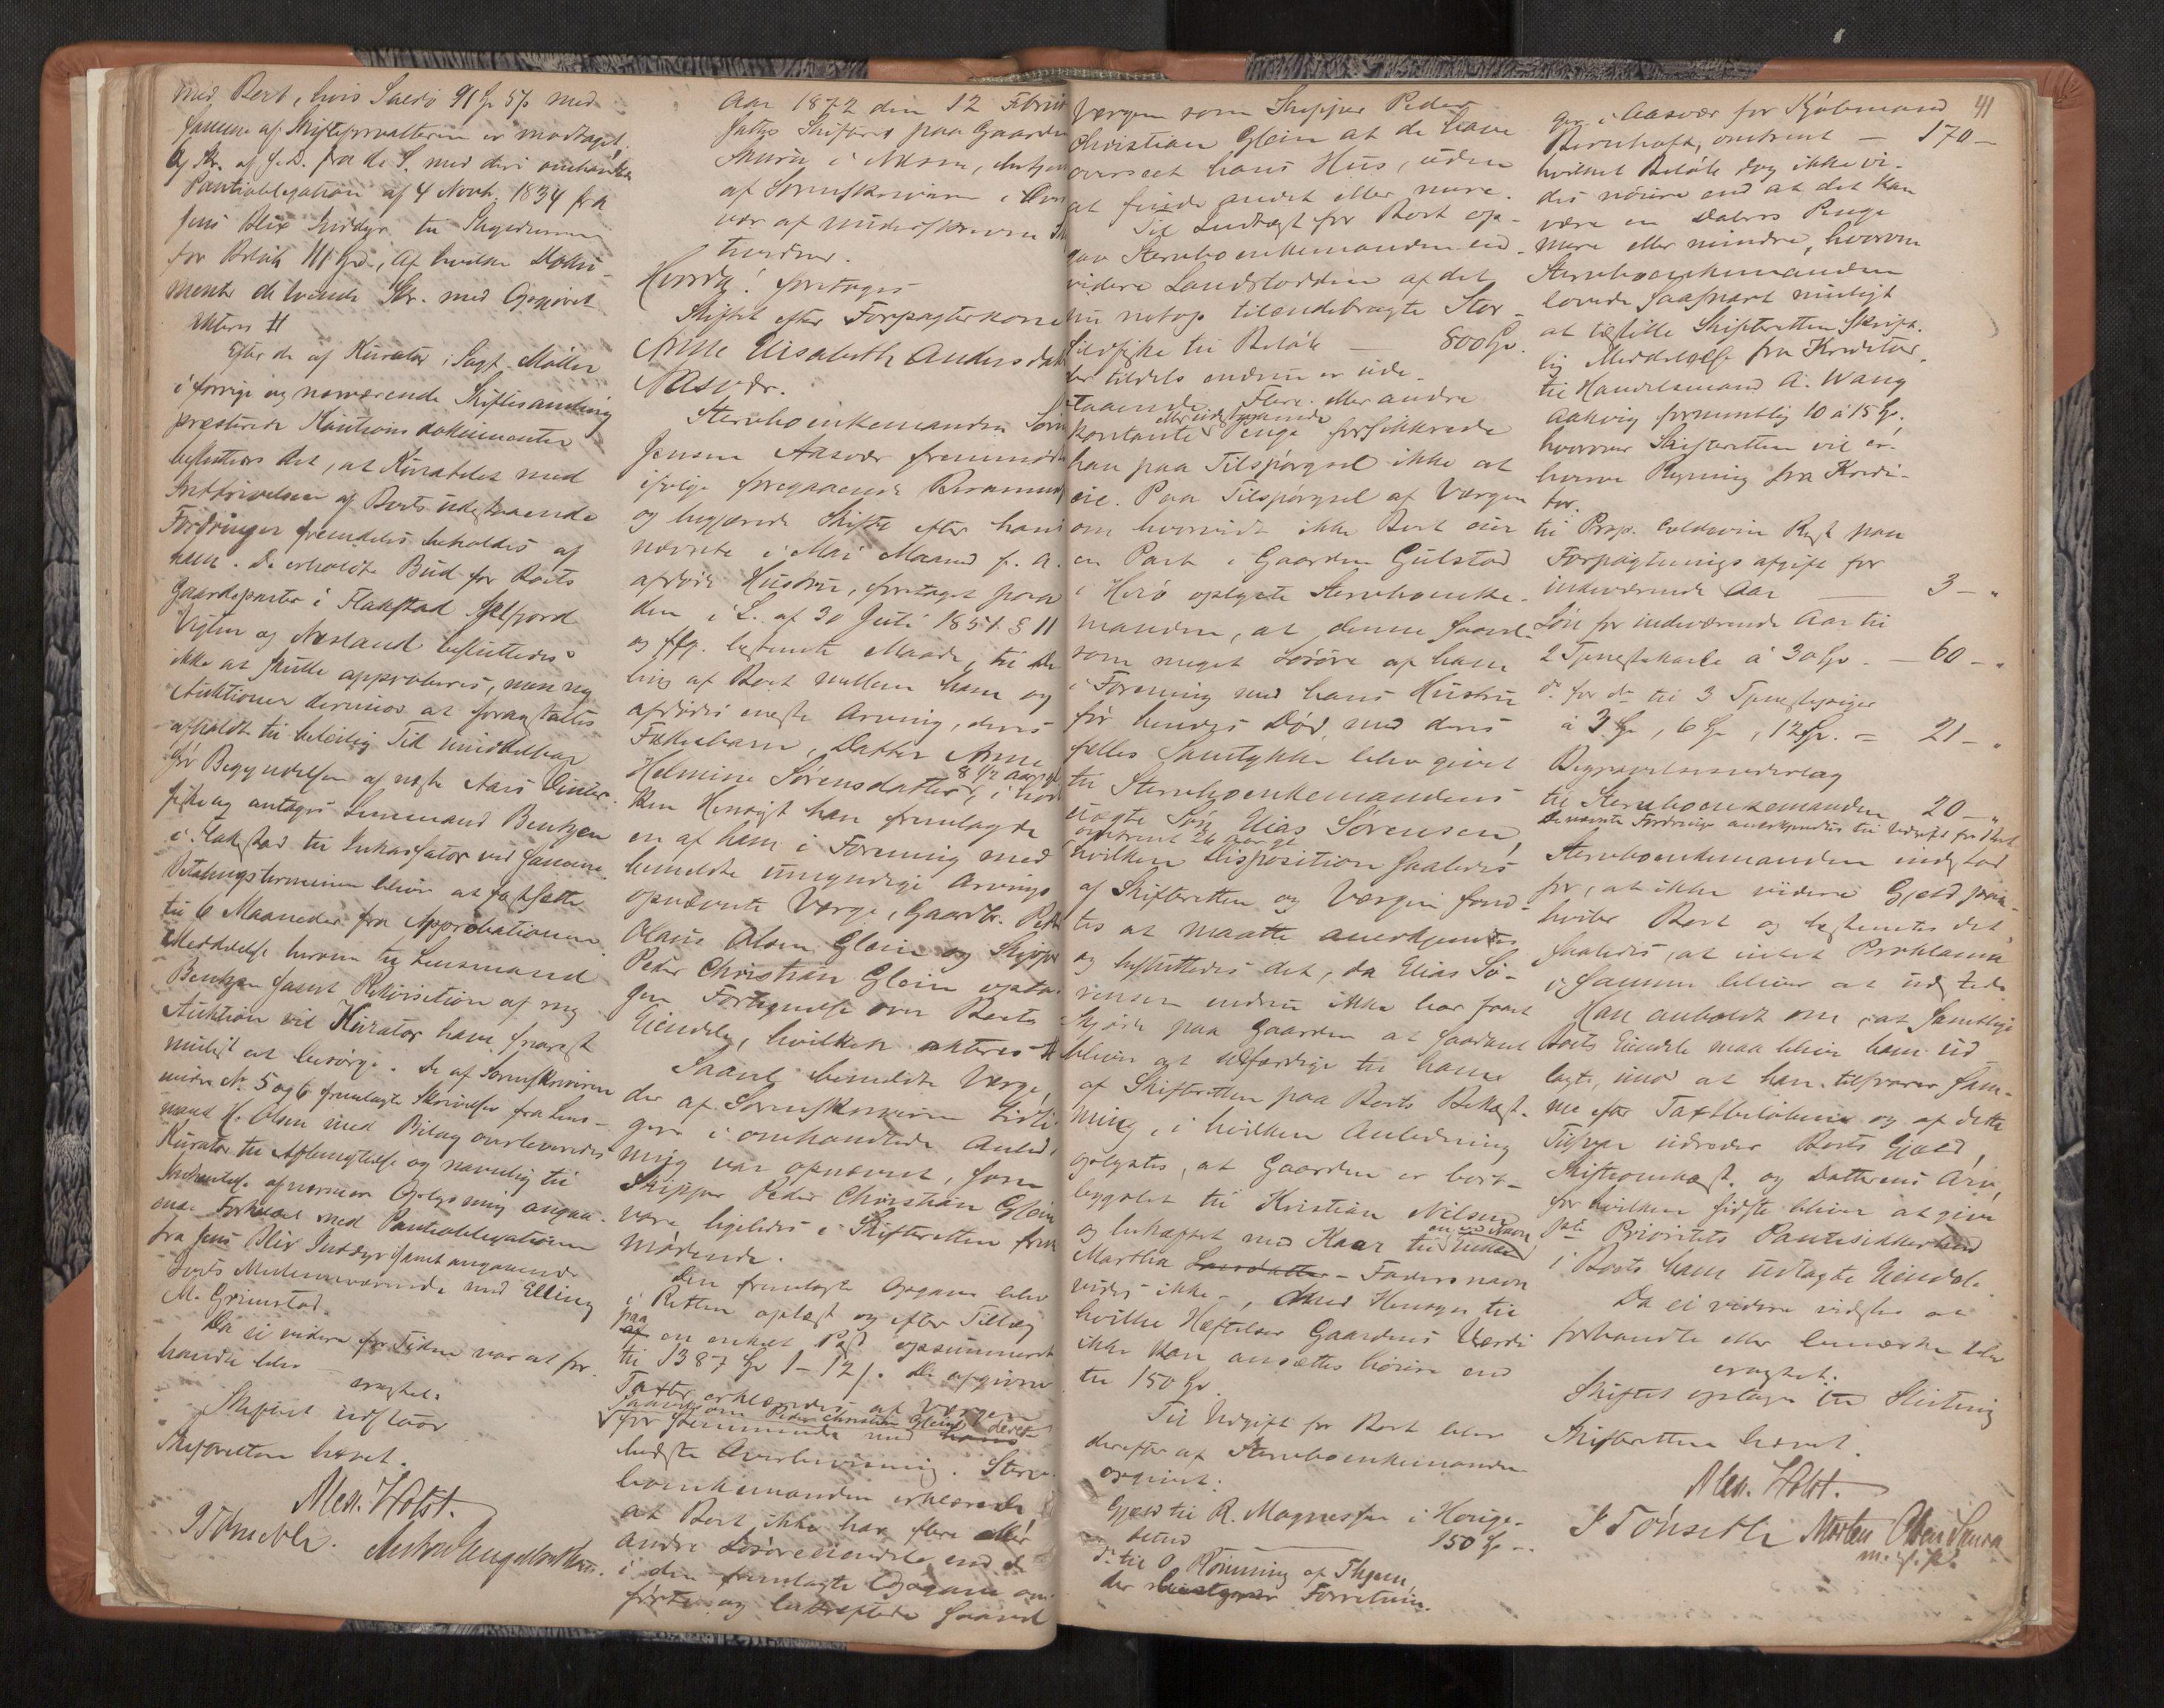 med Boet, hvis Saldo 91 Sp 57 s med
samme af Skifteforvalteren er modtaget,
og Skr. af f. D. fra d. S. med deri omhandlet
Pantobligation af 4 Novb. 1834 fra
Jens Blix Inddyr til
for Beløb 111 Spd., af hvilke Doku-
menter de tvende Skr. med Opgjøret
akteres H
Efter de af Kurator, Sagf. Møller
i forrige og nærværende Skiftesamling
præsterede Kautionsdokumenter
besluttes det, at Kuratelet med
Inddrivelsen af Boets udestaaende
Fordringer fremdeles beholdes af
ham. De erholdte Bud for Boets
Gaardeparter i Flakstad Selfjord
Vigten og Næsland besluttedes
ikke at skulle approberes, men ny
Auktioner derimod at foranstaltes
afholdt til beleilig Tid umiddelbar
før Begyndelsen af næste Aars Vinter-
fiske og antages Lensmand Bentzen
i Flakstad til Inkassator ved samme.
Betalingsterminen bliver at fastsætte
til 6 Maaneder fra Approbationen.
Meddelelse herom til Lensmand
Bentzen samt Rekvisition af ny
Auktion vil Kurator have snarest
muligt at besørge. De af Sorenskriveren
under No 5 og 6 fremlagte Skrivelser fra Lens-
mand H. Olsen med Bilag overleveredes
Kurator til Afbenyttelse og navnlig til
Indhentelse af nærmere Oplysning angaa-
ende Forholdet med Pantobligationen
fra Jens Blix Inddyr samt angaaende
Boets Mellemværende med Elling
M. Grimstad.
Da ei videre for Tiden var at for-
handle blev
eragtet:
Skiftet udstaar
Skifteretten hævet.
Alex. Holst.
J Tønseth.
Aar 1872 den 12 Februar
sattes Skifteret paa Gaarden
Skaura i Næsne,
af Sorenskriveren i Over-
vær af underskrevne
Hvorda! foretoges
Skiftet efter Forpagterkone
Anne Elisabeth Andersdatter
Aasvær.
Sterbboenkemanden Søren
Jensen Aasvær fremmødte
ifølge foregaaende Berammelse
og begjærede Skifte efter hans
nævnte i Mai Maaned f. A.
afdøde Hustru, foretaget paa
den i L. af 30 Juli 1851 § 11
og flg. bestemte Maade, til De-
ling af Boet mellem ham og
afdødes eneste Arving, deres
Fællesbarn, Datter Anne
Helmine Sørensdatter, 8 1/2 Aar gl. i hvil-
ken Hensigt han fremlagde
en af ham i Forening med
bemeldte umyndige Arvings
opnævnte Værge, Gaardbr. Peder
Olaus Olsen Glein og Skipper
Peder Christian Glein optagen
Fortegnelse over Boets
Eiendele, hvilken akteres H
Saavel bemeldte Værge,
der af Sorenskriveren tidli-
gere i omhandlede Anled-
ning var opnævnt, som
Skipper Peder Christian Glein
vare ligeledes i Skifteretten frem-
mødende.
Den fremlagte Opgave blev
i Retten oplæst og efter Tillæg
paa en enkelt Post opsummeret
til 1387 Sp 1 - 12 s. De opgivne
Taxter erklæredes af Værgen
saavelsom Peder Christian Glein
for stemmende med deres
bedste Overbevisning. Sterb-
boenkemanden erklærede
at Boet ikke har flere eller
andre Løsøreeiendele end de
i den fremlagte Opgave an-
førte og bekræftede saavel
Værgen som Skipper Peder
Christian Glein at de have
overseet hans Hus, uden
at finde andet eller mere.
Til Indtægt for Boet op-
gav Sterbboenkemanden end-
videre Landslodden af det
nu netop tilendebragte Stor-
sildfiske til Beløb — 800 Sp.
der tildels endnu er ude-
staaende. Flere eller andre
kontante eller udestaaende Penge forsikkrede
han paa Tilspørgsel ikke at
eie. Paa Tilspørgsel af Værgen
om hvorvidt ikke Boet eier
en Part i Gaarden Gulstad
i Herø oplyste Sterbboenke-
manden, at denne saavel-
som noget Løsøre af ham
i Forening med hans Hustru
før hendes Død, med deres
fælles Samtykke blev givet
til Sterbboenkemandens
uægte Søn Elias Sørensen,
omtrent 26 Aar gl.
hvilken Disposition saaledes
af Skifteretten og Værgen fand-
tes at maatte anerkjendes
og besluttedes det, da Elias Sø-
rensen endnu ikke har faaet
Skjøde paa Gaarden at saadant
bliver at udfærdige til ham
af Skifteretten paa Boets Bekost-
ning, i hvilken Anledning
oplystes, at Gaarden er bort-
bygslet til Kristian Nilsen
og behæftet med Kaar til en ved Navn
Martha Larsdatter - Fadersnavn
vides ikke -, Med Hensyn til
hvilke Hæftelser Gaardens Værdi
ikke kan ansættes høiere end
til 150 Sp.
Til Udgift for Boet blev
derefter af Sterbboenkemanden
opgivet:
Gjæld til R. Magnessen i Hauge-
sund — 150 Sp —
do til O. Rønning af Thjem,
der Forretnin-
41
ger i Aasvær for Kjøbmand
Bernhoft, omtrent — 170 —
hvilket Beløb dog ikke vi-
des nøiere end at det kan
være en Dalers Penge
mere eller mindre, hvorom
Sterbboenkemanden
lovede saasnart muligt
at tilstille Skifteretten skrift-
lig Meddelelse fra Kreditor.
til Handelsmand A. Wang
Aakvig formentlig 10 á 15 Sp,
hvorover Skifteretten vil er-
hverve Regning fra Kredi-
tor.
til Prop. Coldevin Rest paa
Forpagtningsafgift for
indeværende Aar — 3 — "
Løn for indeværende Aar til
2 Tjenestekarle á 30 Sp. — 60 — "
do for do til 3 Tjenestepiger
á 3 Sp, 6 Sp, 12 Sp. — 21 — "
Begravelsesvederlag
til Sterbboenkemanden 20 — "
De nævnte Fordringer anerkjendtes til Udgift for Boet
Sterbboenkemanden indestod
for, at ikke videre Gjæld paa-
hviler Boet og bestemtes det
saaledes, at intet Proklama
i samme bliver at udstede.
Han anholdt om, at samtlige
Boets Eiendele maa blive ham ud-
lagte, imod at han tilsvarer sam-
me efter Taxtbeløbene og af dette
Tilsvar udreder Boets Gjæld,
Skifteomkost. og Datterens Arv,
for hvilken sidste bliver at give
1ste Prioritets Pantesikkerhed
i Boets ham udlagte Eiendele.
Da ei videre vidstes at
forhandle eller bemærke blev
eragtet:
Skiftet optages til Slutning
Skifteretten hævet.
Alex. Holst.
J Tønseth Morten Olsen Skaura
m. f. P.